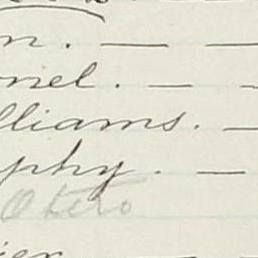 n. — —
onel. — —
lliams. —
phy. — —
Otero
ier